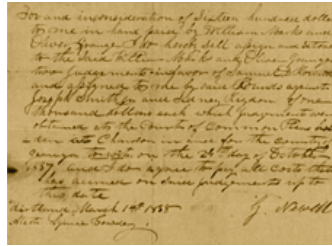 For and inconsideration of Sixteen hundred dolls
to me in hand paid by William Marks and
Oliver Granger I do hereby sell assign and set over
to the Said William Marks and Oliver Granger
two Judgements in favor of Samuel D Rounds
and assigned to me by said Rounds against
Joseph Smith Jr and Sidney Rigdon of one
thousand dollars each which judgments were
obtained at the Court of Common Pleas
at Chardon in and for the County
Geauga on the 24th day of October
1837 and I do agree to pay all costs that
has accrued on said judgments up to
this date
Kirtland March 1st 1838
G. Newell